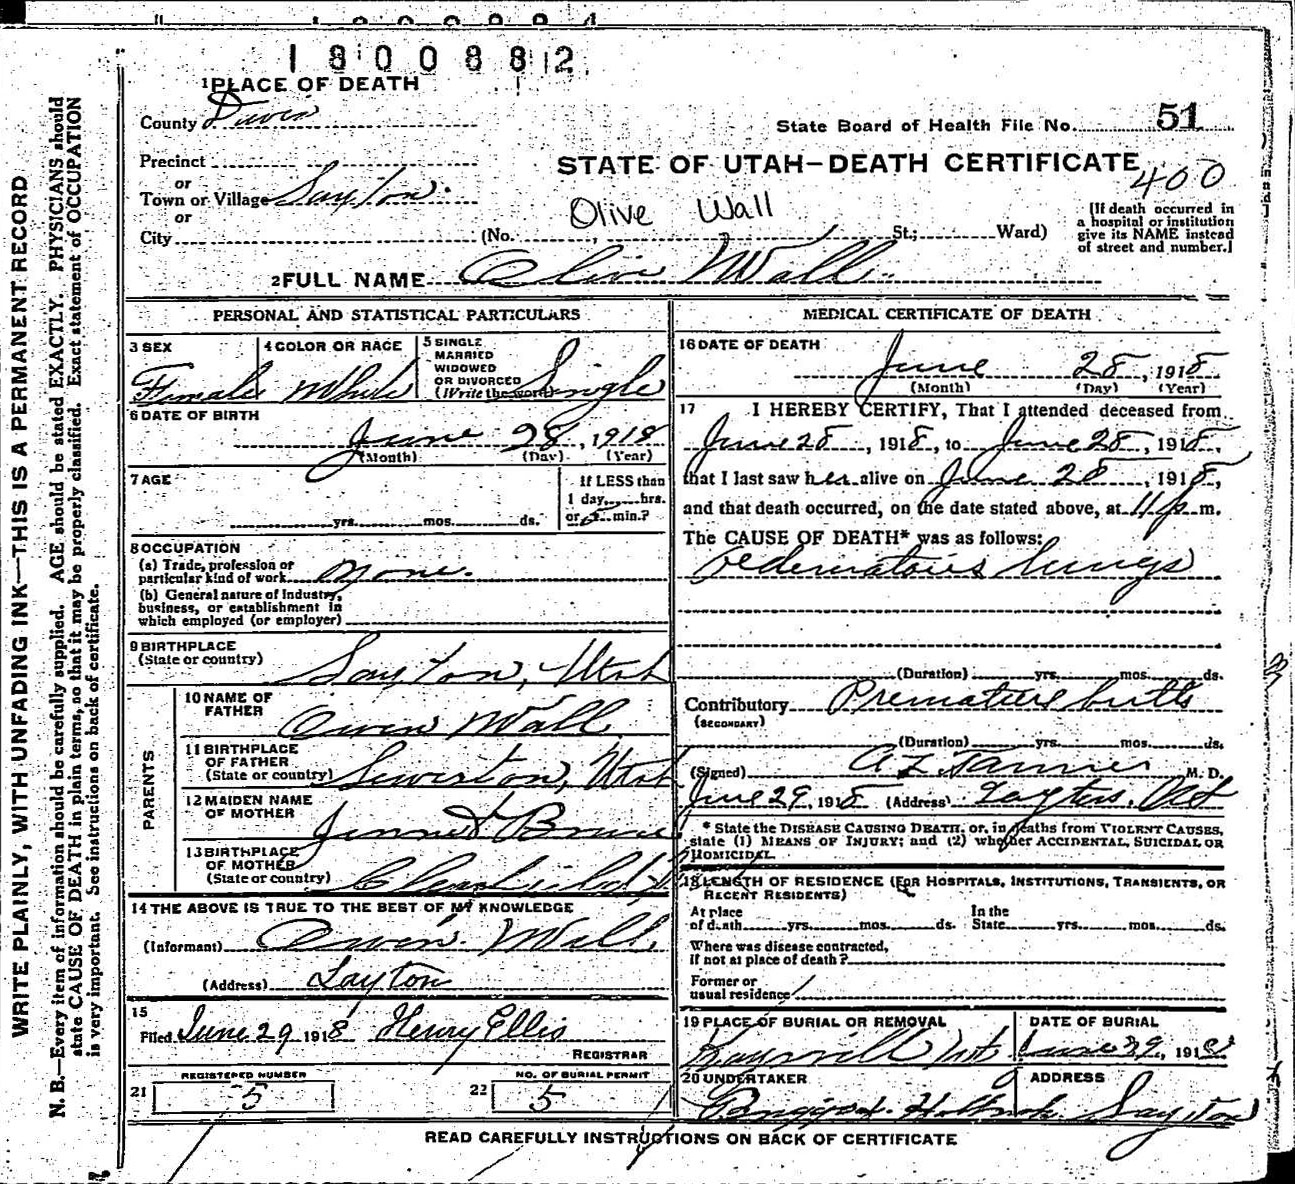 1800882
1 PLACE OF DEATH
County Davis
State Board of Health File No. 51
Precinct
STATE OF UTAH—DEATH CERTIFICATE
400
or
Town or Village Layton.
or
Olive Wall
City (No. , St.; Ward)
[If death occurred in
a hospital or institution
give its NAME instead
of street and number.]
2 FULL NAME Olive Wall
PERSONAL AND STATISTICAL PARTICULARS
3 SEX
Female
4 COLOR OR RACE
White
5 SINGLE
MARRIED
WIDOWED
OR DIVORCED
(Write the word) Single
6 DATE OF BIRTH
June 28, 1918
(Month) (Day) (Year)
7 AGE
yrs. mos. ds.
If LESS than
1 day, hrs.
or min.?
8 OCCUPATION
(a) Trade, profession or
particular kind of work None.
(b) General nature of Industry,
business, or establishment in
which employed (or employer)
9 BIRTHPLACE
(State or country) Layton, Utah
PARENTS
10 NAME OF
FATHER Owen Wall
11 BIRTHPLACE
OF FATHER
(State or country) Utah
12 MAIDEN NAME
OF MOTHER
13 BIRTHPLACE
OF MOTHER
(State or country)
14 THE ABOVE IS TRUE TO THE BEST OF MY KNOWLEDGE
(Informant) Owen Wall,
(Address) Layton
15
Filed June 29, 1918 Henry Ellis
REGISTRAR
REGISTERED NUMBER
21 5
NO. OF BURIAL PERMIT
22 5
MEDICAL CERTIFICATE OF DEATH
16 DATE OF DEATH
June 28, 1918
(Month) (Day) (Year)
17 I HEREBY CERTIFY, That I attended deceased from
June 28, 1918, to June 28, 1918,
that I last saw her alive on June 28, 1918,
and that death occurred, on the date stated above, at 11 p. m.
The CAUSE OF DEATH* was as follows:
Oedematous lungs
(Duration) yrs. mos. ds.
Contributory Premature birth
(SECONDARY)
(Duration) yrs. mos. ds.
(Signed) A Z Tanner M. D.
June 29, 1918 (Address) Layton, Ut
* State the DISEASE CAUSING DEATH, or, in deaths from VIOLENT CAUSES,
state (1) MEANS OF INJURY; and (2) whether ACCIDENTAL, SUICIDAL OR
HOMICIDAL.
18 LENGTH OF RESIDENCE (FOR HOSPITALS, INSTITUTIONS, TRANSIENTS, OR
RECENT RESIDENTS)
At place
of death yrs. mos. ds.
In the
State yrs. mos. ds.
Where was disease contracted,
if not at place of death?
Former or
usual residence
19 PLACE OF BURIAL OR REMOVAL
Kaysville Ut
DATE OF BURIAL
June 29, 1918
20 UNDERTAKER
ADDRESS
Layton
READ CAREFULLY INSTRUCTIONS ON BACK OF CERTIFICATE
WRITE PLAINLY, WITH UNFADING INK—THIS IS A PERMANENT RECORD
N. B.—Every item of information should be carefully supplied. AGE should be stated EXACTLY. PHYSICIANS should
state CAUSE OF DEATH in plain terms, so that it may be properly classified. Exact statement of OCCUPATION
is very important. See instructions on back of certificate.